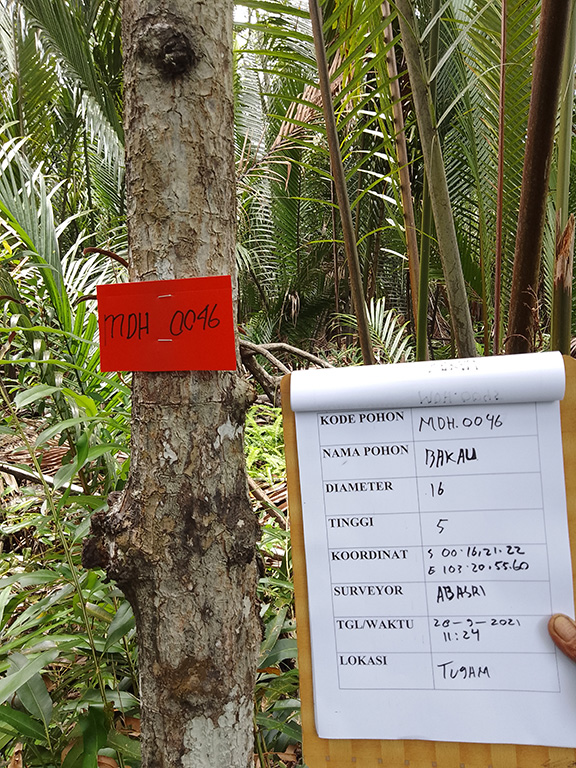 MDH 0046
KODE POHON MDH.0046
NAMA POHON BAKAU
DIAMETER 16
TINGGI 5
KOORDINAT S 00.16,21.22
E 103.20,55.60
SURVEYOR ABASRI
TGL/WAKTU 28-9-2021
11:24
LOKASI